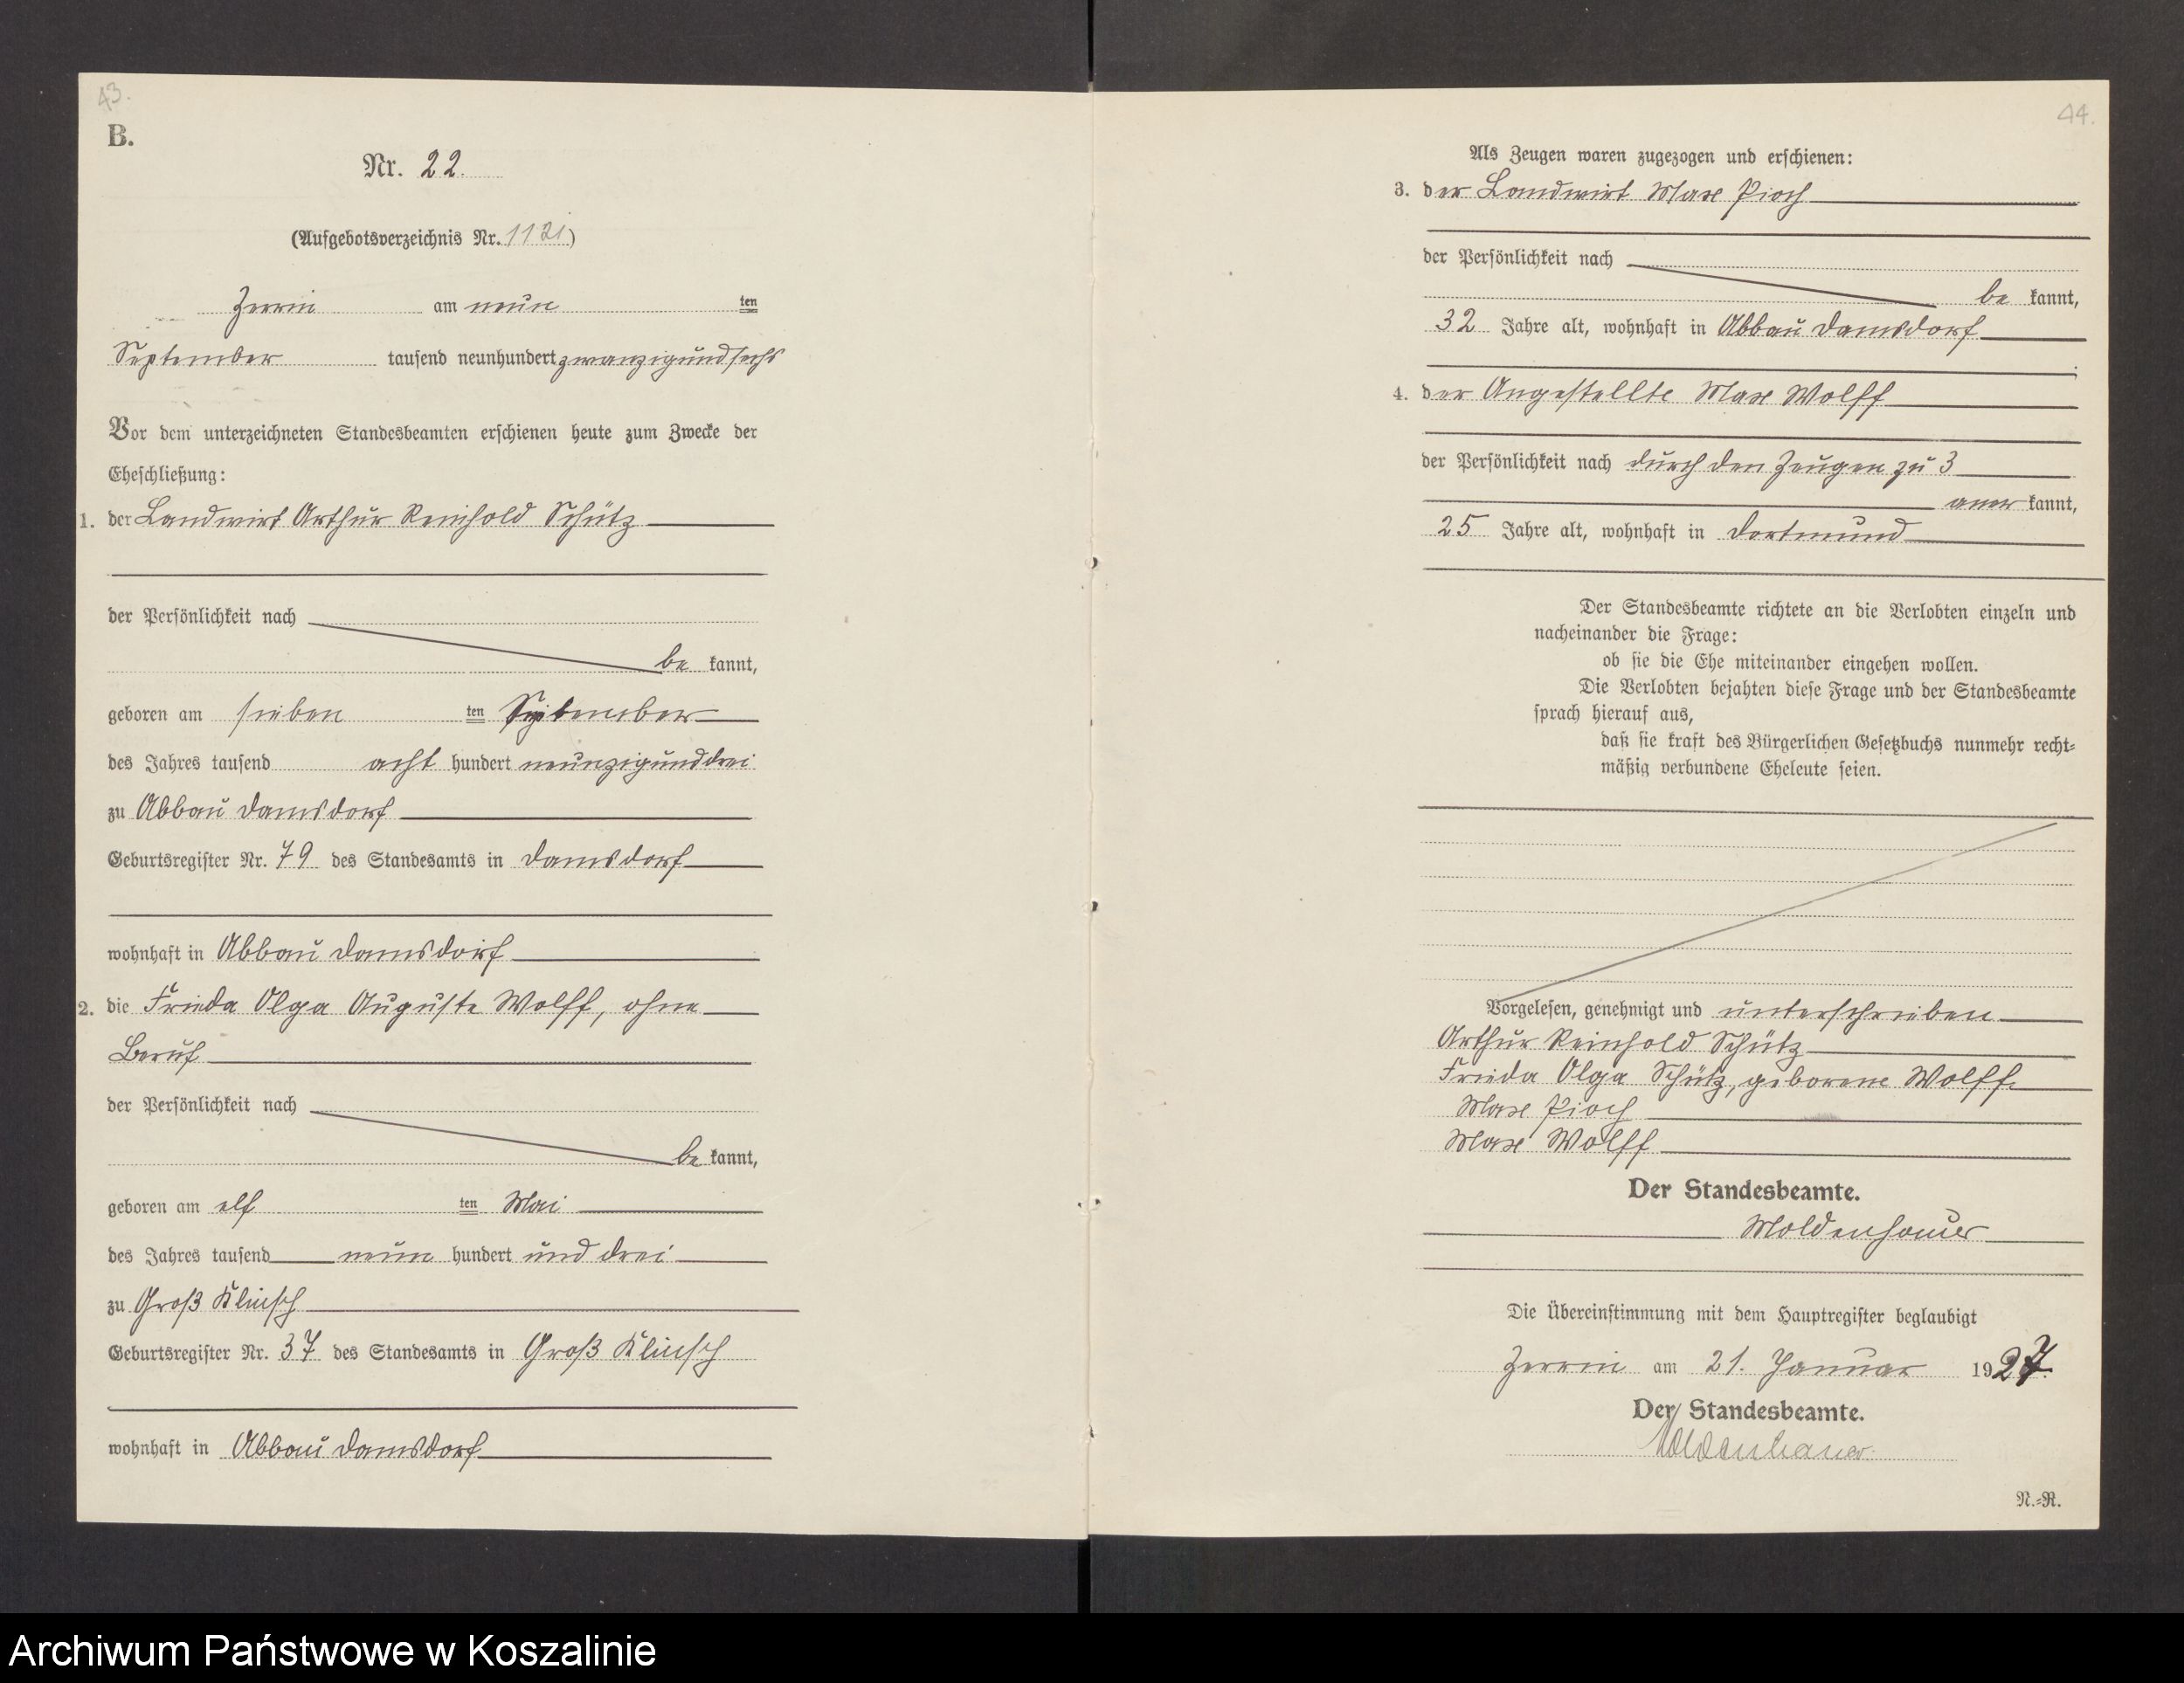 43.
B.
Nr. 22.
(Aufgebotsverzeichnis Nr. )
Zerrin am neun ten
September tausend neunhundert zwanzigundsechs
Vor dem unterzeichneten Standesbeamten erschienen heute zum Zwecke der
Eheschließung:
1. der Landwirt Arthur Reinhold Schütz
der Persönlichkeit nach
be kannt,
geboren am sieben ten September
des Jahres tausend acht hundert neunzigunddrei
zu Abbau Damsdorf
Geburtsregister Nr. 79 des Standesamts in Damsdorf
wohnhaft in Abbau Damsdorf
2. die Frieda Olga Auguste Wolff, ohne
Beruf
der Persönlichkeit nach
be kannt,
geboren am elf ten Mai
des Jahres tausend neun hundert und drei
zu Groß Klinsch
Geburtsregister Nr. 37 des Standesamts in Groß Klinsch
wohnhaft in Abbau Damsdorf
44.
Als Zeugen waren zugezogen und erschienen:
3. der Landwirt Max Pioch
der Persönlichkeit nach
be kannt,
32 Jahre alt, wohnhaft in Abbau Damsdorf
4. der Angestellte Max Wolff
der Persönlichkeit nach durch den Zeugen zu 3
aner kannt,
25 Jahre alt, wohnhaft in Dortmund
Der Standesbeamte richtete an die Verlobten einzeln und
nacheinander die Frage:
ob sie die Ehe miteinander eingehen wollen.
Die Verlobten bejahten diese Frage und der Standesbeamte
sprach hierauf aus,
daß sie kraft des Bürgerlichen Gesetzbuchs nunmehr recht-
mäßig verbundene Eheleute seien.
Vorgelesen, genehmigt und unterschrieben
Arthur Reinhold Schütz
Frieda Olga Schütz, geborene Wolff.
Max Pioch
Max Wolff
Der Standesbeamte.
Moldenhauer
Die Übereinstimmung mit dem Hauptregister beglaubigt
Zerrin am 21. Januar 1927.
Der Standesbeamte.
Moldenhauer.
N.-R.
Archiwum Państwowe w Koszalinie